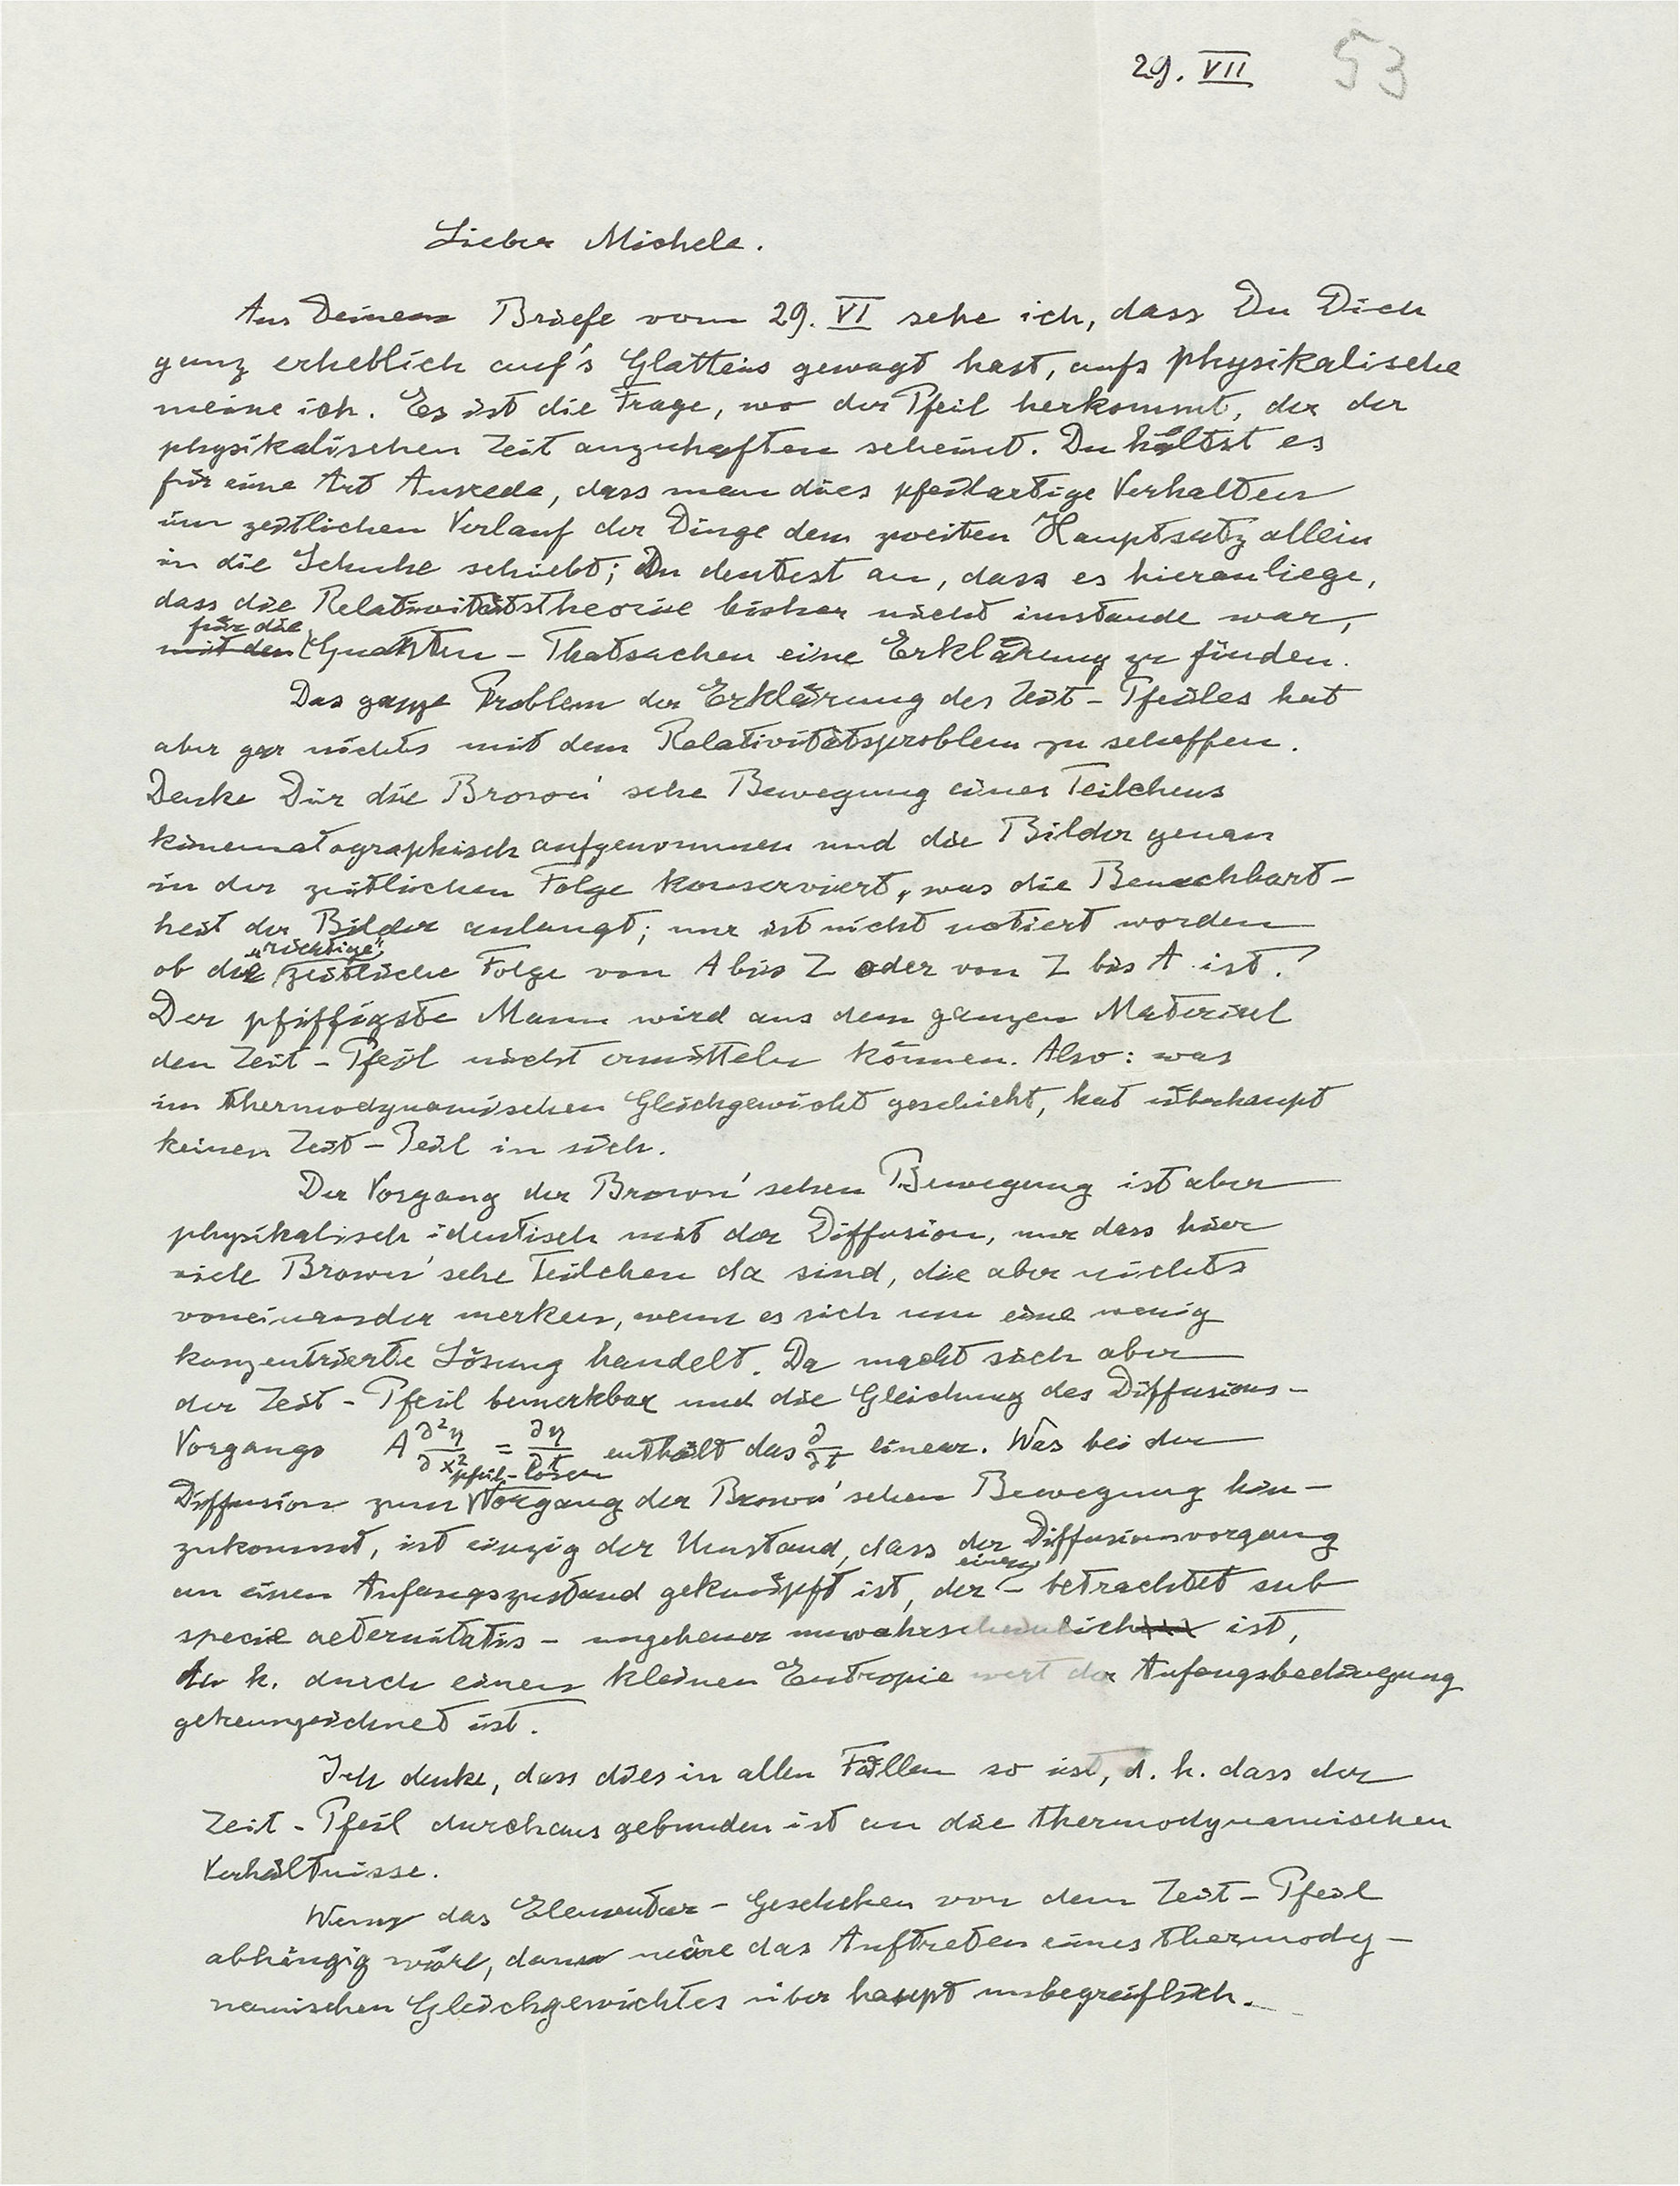 29. VII 53
Lieber Michele.
Aus Deinem Briefe vom 29. VI sehe ich, dass Du Dich
ganz erheblich auf's Glatteis gewagt hast, aufs physikalische
meine ich. Es ist die Frage, wo der Pfeil herkommt, der der
physikalischen Zeit anzuhaften scheint. Du hältst es
für eine Art Ausrede, dass man dies pfeilartige Verhalten
im zeitlichen Verlauf der Dinge dem zweiten Hauptsatz allein
in die Schuhe schiebt; Du deutest an, dass es hieran liege,
dass die Relativitätstheorie bisher nicht imstande war,
für die
mit den Quanten-Thatsachen eine Erklärung zu finden.
Das ganze Problem der Erklärung des Zeit-Pfeiles hat
aber gar nichts mit dem Relativitätsproblem zu schaffen.
Denke Dir die Brown'sche Bewegung eines Teilchens
kinematographisch aufgenommen und die Bilder genau
in der zeitlichen Folge konserviert, was die Benachbart-
heit der Bilder anlangt; nur ist nicht notiert worden
„richtige"
ob die zeitliche Folge von A bis Z oder von Z bis A ist.
Der pfiffigste Mann wird aus dem ganzen Material
den Zeit-Pfeil nicht ermitteln können. Also: was
im thermodynamischen Gleichgewicht geschieht, hat überhaupt
keinen Zeit-Peil in sich.
Der Vorgang der Brown'schen Bewegung ist aber
physikalisch identisch mit der Diffusion, nur dass hier
viele Brown'sche Teilchen da sind, die aber nichts
voneinander merken, wenn es sich um eine wenig
konzentrierte Lösung handelt. Da macht sich aber
der Zeit-Pfeil bemerkbar und die Gleichung des Diffusions-
Vorgangs A ∂²η/∂x² = ∂η/∂t enthält das ∂/∂t linear. Was bei der
pfeil-losen
Diffusion zum Vorgang der Brown'schen Bewegung hin-
zukommt, ist einzig der Umstand, dass der Diffusionsvorgang
an einen Anfangszustand geknüpft ist, der - betrachtet sub
specie aeternitatis - ungeheuer unwahrscheinlich ist,
d. h. durch einen kleinen Entropiewert der Anfangsbedingung
gekennzeichnet ist.
Ich denke, dass dies in allen Fällen so ist, d. h. dass der
Zeit-Pfeil durchaus gebunden ist an die thermodynamischen
Verhältnisse.
Wenn das Elementar-Geschehen von dem Zeit-Pfeil
abhängig wäre, dann wäre das Auftreten eines thermody-
namischen Gleichgewichtes überhaupt unbegreiflich.